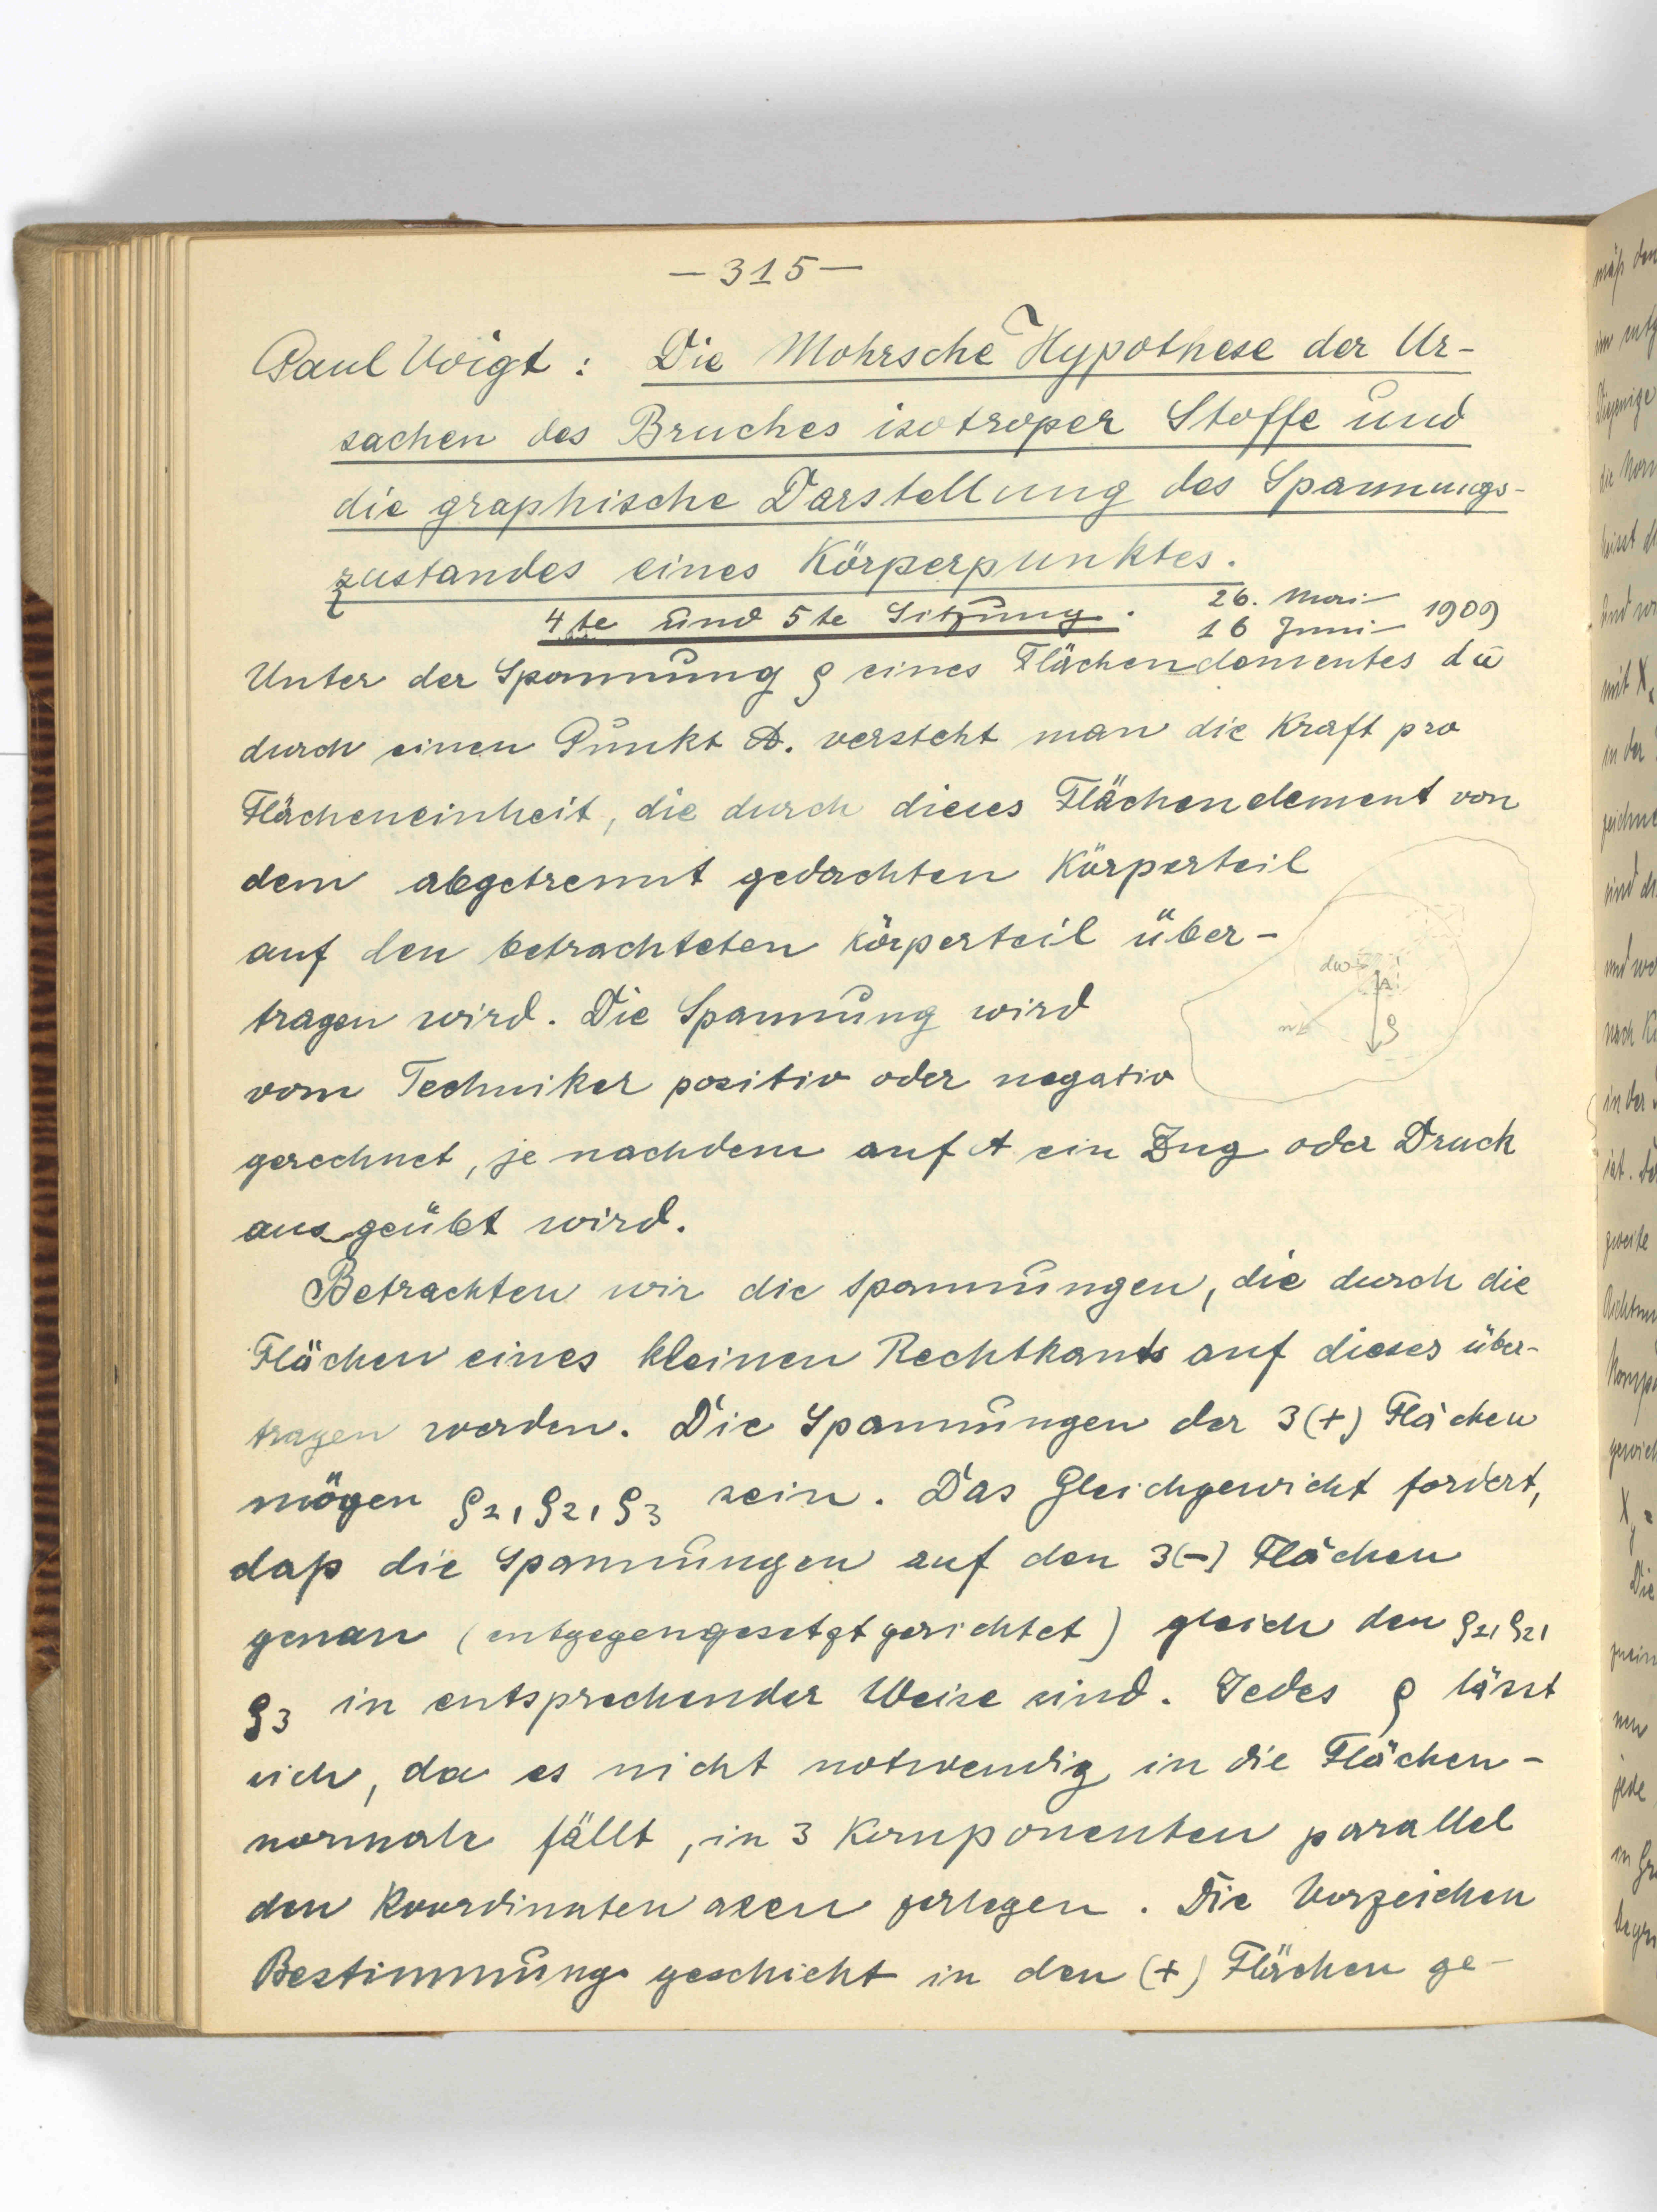 — 315 —
Paul Voigt : Die Mohrsche Hypothese der Ur-
sachen des Bruches isotroper Stoffe und
die graphische Darstellung des Spannungs-
zustandes eines Körperpunktes.
4te und 5te Sitzung. 26. Mai – 1909
16 Juni –
Unter der Spannung ρ eines Flächenelementes dω
durch einen Punkt A. versteht man die Kraft pro
Flächeneinheit, die durch dieses Flächenelement von
dem abgetrennt gedachten Körperteil
auf den betrachteten Körperteil über-
tragen wird. Die Spannung wird
vom Techniker positiv oder negativ
gerechnet, je nachdem auf A ein Zug oder Druck
ausgeübt wird.
dω
A
n
ρ
Betrachten wir die Spannungen, die durch die
Flächen eines kleinen Rechtkants auf dieses über-
tragen werden. Die Spannungen der 3 (+) Flächen
mögen ρ2, ρ2, ρ3 sein. Das Gleichgewicht fordert,
daß die Spannungen auf den 3 (-) Flächen
genau (entgegengesetzt gerichtet) gleich den ρ2, ρ2,
ρ3 in entsprechender Weise sind. Jedes ρ lässt
sich, da es nicht notwendig in die Flächen-
normale fällt, in 3 Komponenten parallel
den Koordinatenaxen zerlegen. Die Vorzeichen
Bestimmung geschieht in den (+) Flächen ge-